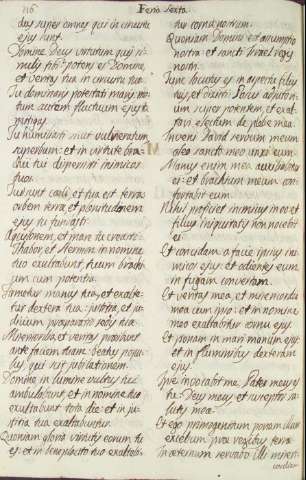 116
Feria Sexta
dus super omnes qui in circuitu
ejus sunt.
Domine Deus virtutum quis si-
milis tibi? potens es Domine,
et veritas tua in circuitu tuo.
Tu dominaris potestati maris: mo-
tum autem fluctuum ejus tu
mitigas.
Tu humiliasti sicut vulneratum
superbum: et in virtute bra-
chii tui dispersisti inimicos
tuos.
Tui sunt caeli, et tua est terra:
orbem terrae et plenitudinem
ejus tu fundasti:
Aquilonem, et mare tu creasti.
Thabor, et Hermon in nomine
tuo exaltabunt, tuum brachi-
um cum potentia.
Firmetur manus tua, et exalte-
tur dextera tua: justitia, et ju-
dicium praeparatio sedis tuae.
Misericordia, et veritas praecedent
ante faciem tuam: beatus popu-
lus, qui scit jubilationem.
Domine, in lumine vultus tui
ambulabunt, et in nomine tuo
exultabunt tota die: et in jus-
titia tua exaltabuntur.
Quoniam gloria virtutis eorum tu
es: et in beneplacito tuo exaltabi-
tur cornu nostrum.
Quoniam Domini est assumptio
nostra et sancti Israel regis
nostri.
Tunc locutus es in visione
tuis, et dixisti: Posui adjutori-
um super potentem, et exal-
tavi electum de plebe mea.
Inveni David servum meum:
oleo sancto meo unxi eum.
Manus enim mea auxiliabitur
ei: et brachium meum con-
fortabit eum.
Nihil proficiet inimicus in eo: et
filius iniquitatis non nocebit
ei.
Et concidam a facie ipsius ini-
micos ejus: et odientes eum
in fugam convertam.
Et veritas mea, et misericordia
mea cum ipso: et in nomine
meo exaltabitur cornu ejus.
Et ponam in mari manum ejus:
et in fluminibus dexteram
ejus.
Ipse invocabit me, Pater meus es
tu: Deus meus, et susceptor sa-
lutis meae.
Et ego primogenitum ponam illum
excelsum prae regibus terrae.
In aeternum servabo illi miseri-
cordiam